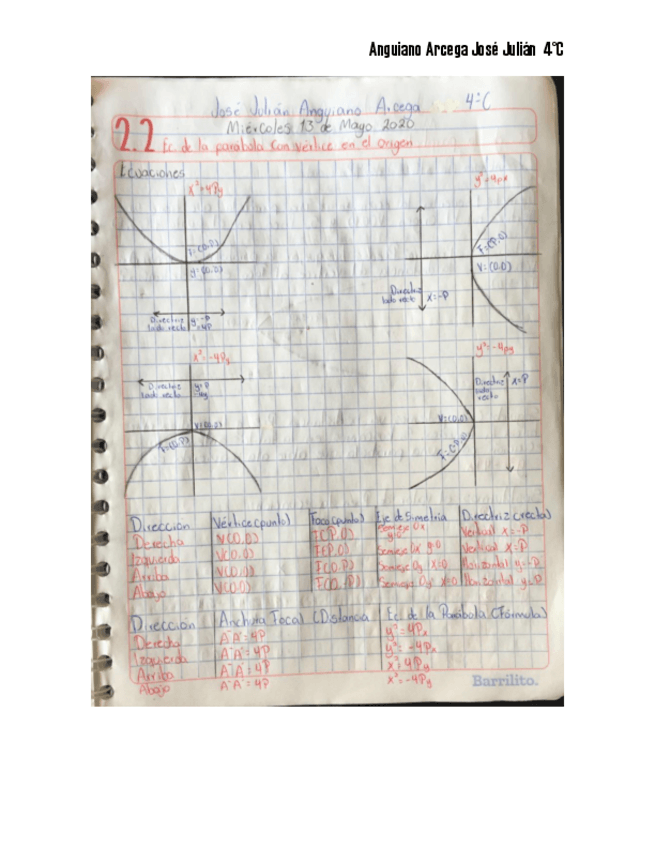 Anguiano Arcega José Julián 4°C
José Julián Anguiano Arcega 4°C
Miércoles 13 de Mayo 2020
2.2 Ec. de la parabola con vértice en el origen
Ecuaciones
x²=4Py
F=(0,P)
V=(0,0)
Directriz y=-P
lado recto =4P
y²=4px
F=(P,0)
V=(0,0)
Directriz
lado recto x=-P
x²=-4Py
Directriz y=P
lado recto
V=(0,0)
F=(0,P)
y²=-4py
Directriz x=P
lado
recto
V=(0,0)
Dirección Vértice (punto) Foco (punto) Eje de Simetria Directriz (recta)
Derecha V(0,0) F(P,0) Semieje Ox Vertical x=-P
Izquierda V(0,0) Semieje Ox y=0 Vertical x=P
Arriba V(0,0) F(0,P) Semieje Oy x=0 Horizontal y=-P
Abajo V(0,0) F(0,-P) Semieje Oy x=0 Horizontal y=P
Dirección Anchura Focal (Distancia Ec. de la Parábola (Fórmula)
Derecha A-A'=4P y²=4Px
Izquierda A-A'=4P y²=-4Px
Arriba A-A'=4P x²=4Py
Abajo A-A'=4P x²=-4Py
Barrilito.